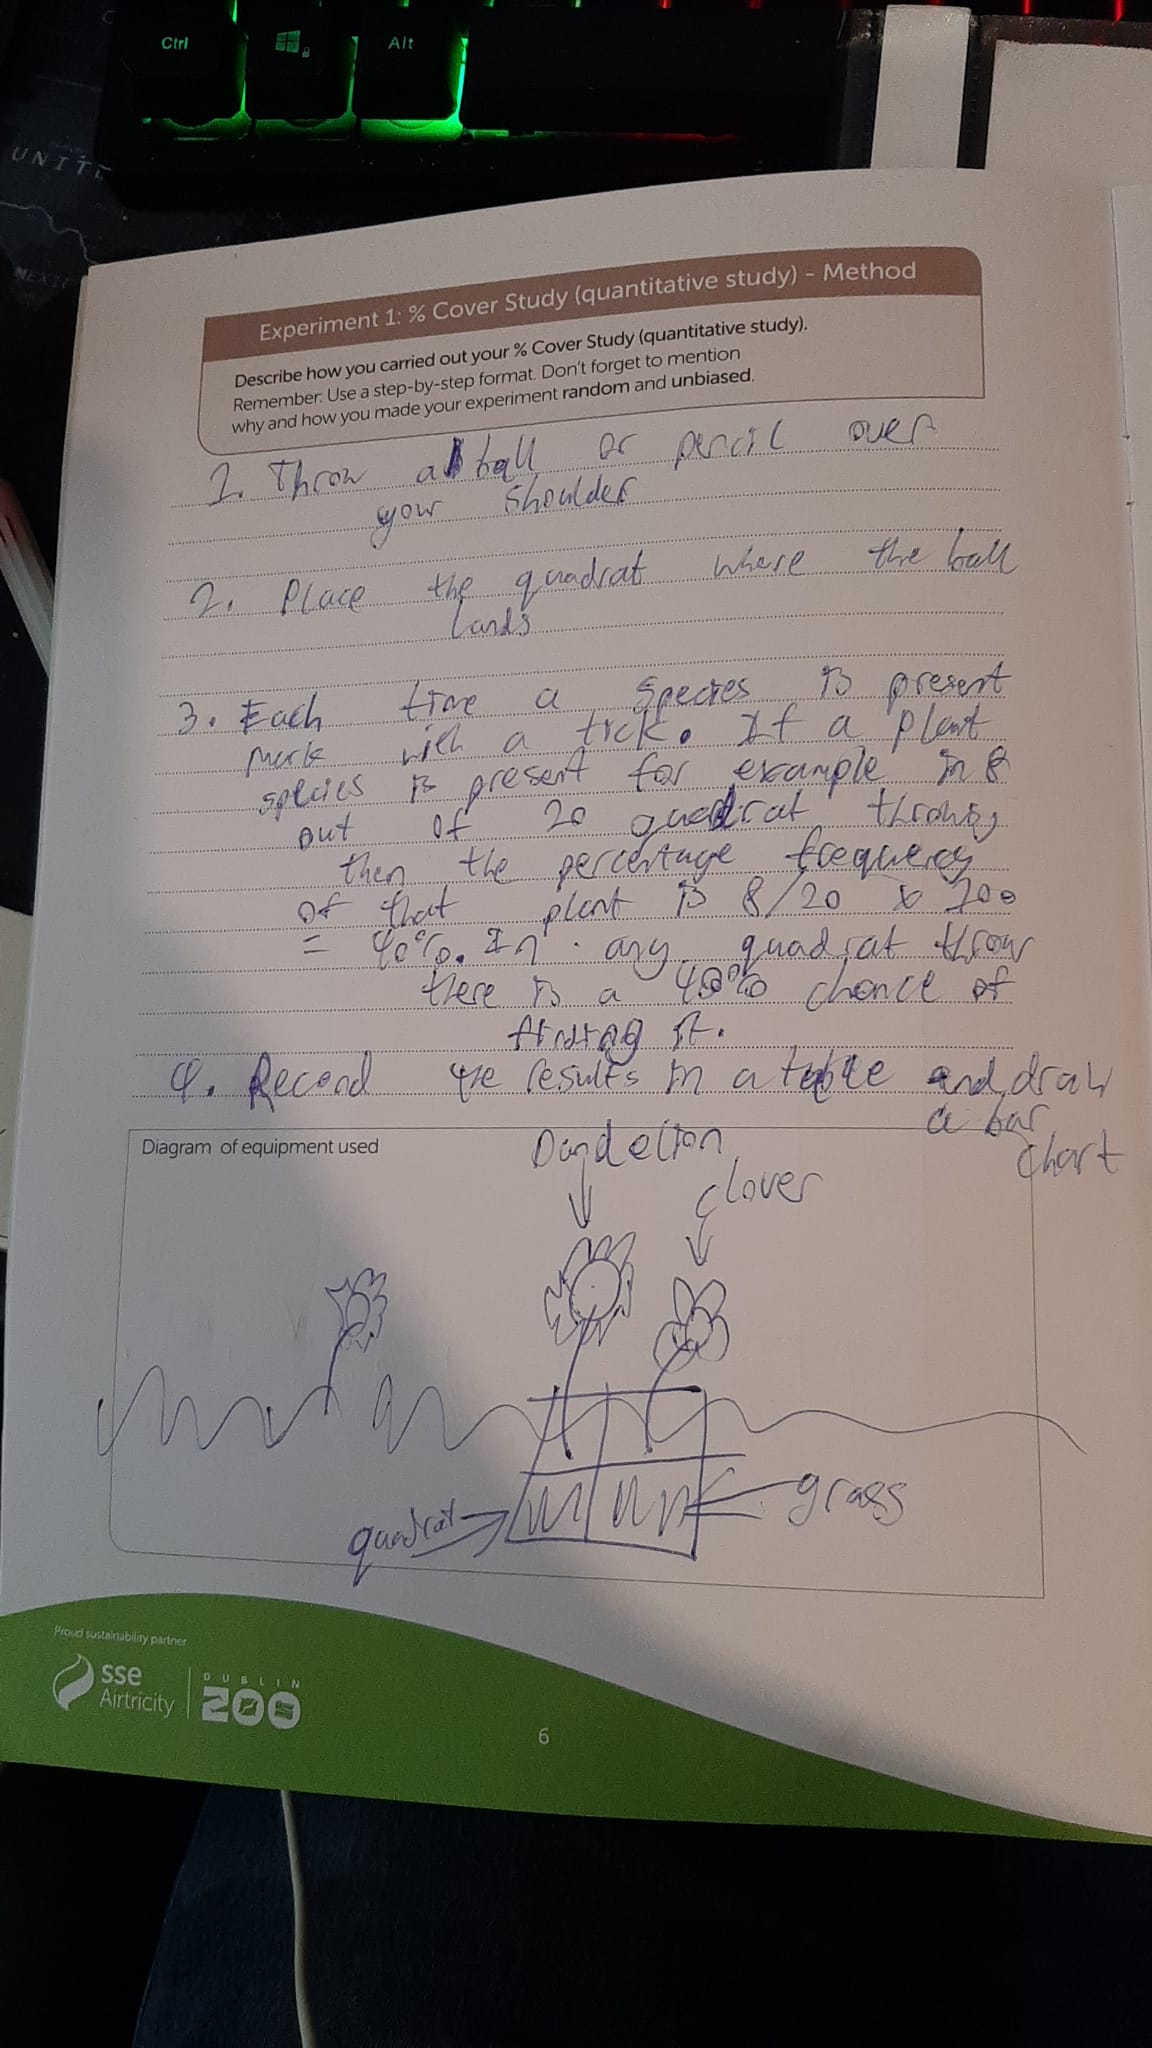 Ctrl
Alt
UNITE
MEXIC
Experiment 1: % Cover Study (quantitative study) - Method
Describe how you carried out your % Cover Study (quantitative study).
Remember: Use a step-by-step format. Don't forget to mention
why and how you made your experiment random and unbiased.
1. Throw a ball or pencil over
your shoulder
2. Place the quadrat where the ball
lands
3. Each time a species is present
mark with a tick. If a plant
species is present for example in 8
out of 20 quadrat throws,
then the percentage frequency
of that plant is 8/20 x 100
= 40%. In any quadrat throw
there is a 40% chance of
finding it.
4. Record the results in a table and draw
a bar
chart
Diagram of equipment used
Dandelion
clover
grass
quadrat
Proud sustainability partner
sse
Airtricity
DUBLIN
ZOO
6